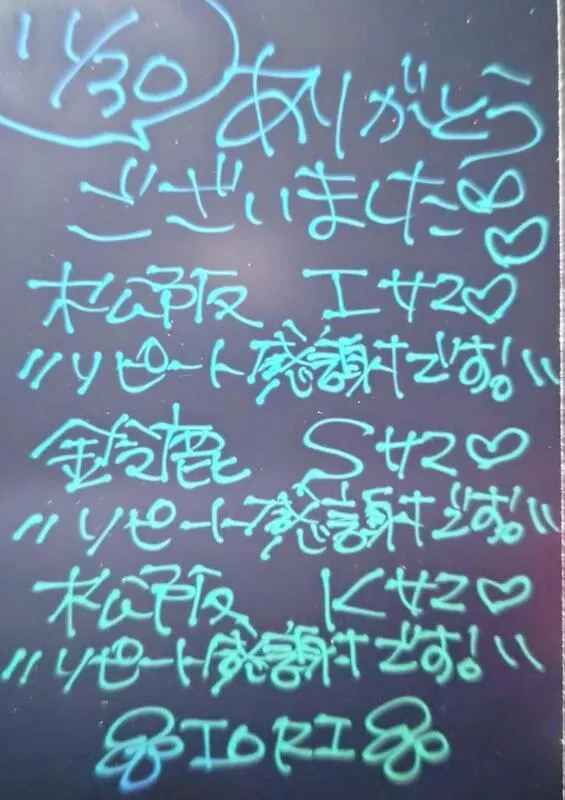 11/30 ありがとう
ございました♡♡
松阪 Iサン♡
〃リピート感謝です!〃
鈴鹿 Sサン♡
〃リピート感謝です!〃
松阪 Kサン♡
〃リピート感謝です!〃
IORI